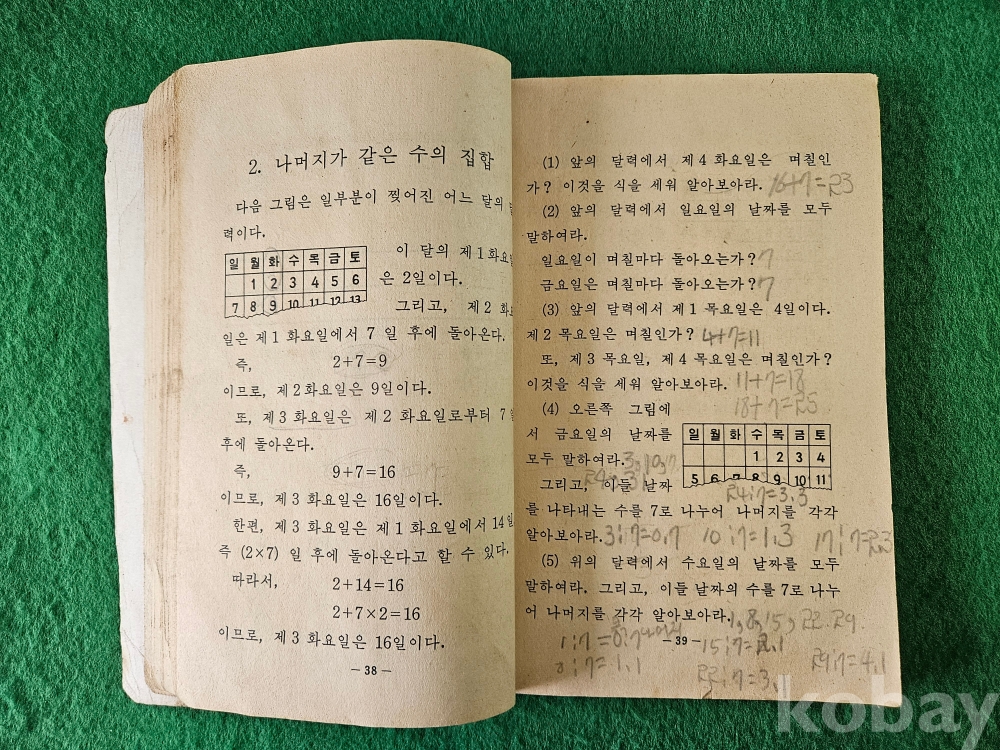 2. 나머지가 같은 수의 집합
다음 그림은 일부분이 찢어진 어느 달의
력이다.
일 월 화 수 목 금 토
1 2 3 4 5 6
7 8 9 10 11 12 13
이 달의 제 1 화요일
은 2일이다.
그리고, 제 2 화요
일은 제 1 화요일에서 7 일 후에 돌아온다.
즉, 2+7=9
이므로, 제 2 화요일은 9일이다.
또, 제 3 화요일은 제 2 화요일로부터 7일
후에 돌아온다.
즉, 9+7=16
이므로, 제 3 화요일은 16일이다.
한편, 제 3 화요일은 제 1 화요일에서 14일
즉 (2×7) 일 후에 돌아온다고 할 수 있다.
따라서, 2+14=16
2+7×2=16
이므로, 제 3 화요일은 16일이다.
－38－
(1) 앞의 달력에서 제 4 화요일은 며칠인
가? 이것을 식을 세워 알아보아라. 16+7=23
(2) 앞의 달력에서 일요일의 날짜를 모두
말하여라.
일요일이 며칠마다 돌아오는가? 7
금요일은 며칠마다 돌아오는가? 7
(3) 앞의 달력에서 제 1 목요일은 4일이다.
제 2 목요일은 며칠인가? 4+7=11
또, 제 3 목요일, 제 4 목요일은 며칠인가?
이것을 식을 세워 알아보아라. 11+7=18
18+7=25
(4) 오른쪽 그림에
서 금요일의 날짜를
모두 말하여라. 3, 10, 17
그리고, 이들 날짜
일 월 화 수 목 금 토
1 2 3 4
5 6 7 8 9 10 11
24÷7=3.3
를 나타내는 수를 7로 나누어 나머지를 각각
알아보아라. 3÷7=0.7 10÷7=1.3 17÷7=2.3
(5) 위의 달력에서 수요일의 날짜를 모두
말하여라. 그리고, 이들 날짜의 수를 7로 나누
어 나머지를 각각 알아보아라. 1, 8, 15, 22 29
1÷7=
15÷7=2.1
－39－
8÷7=1.1
22÷7=3.1
29÷7=4.1
kobay